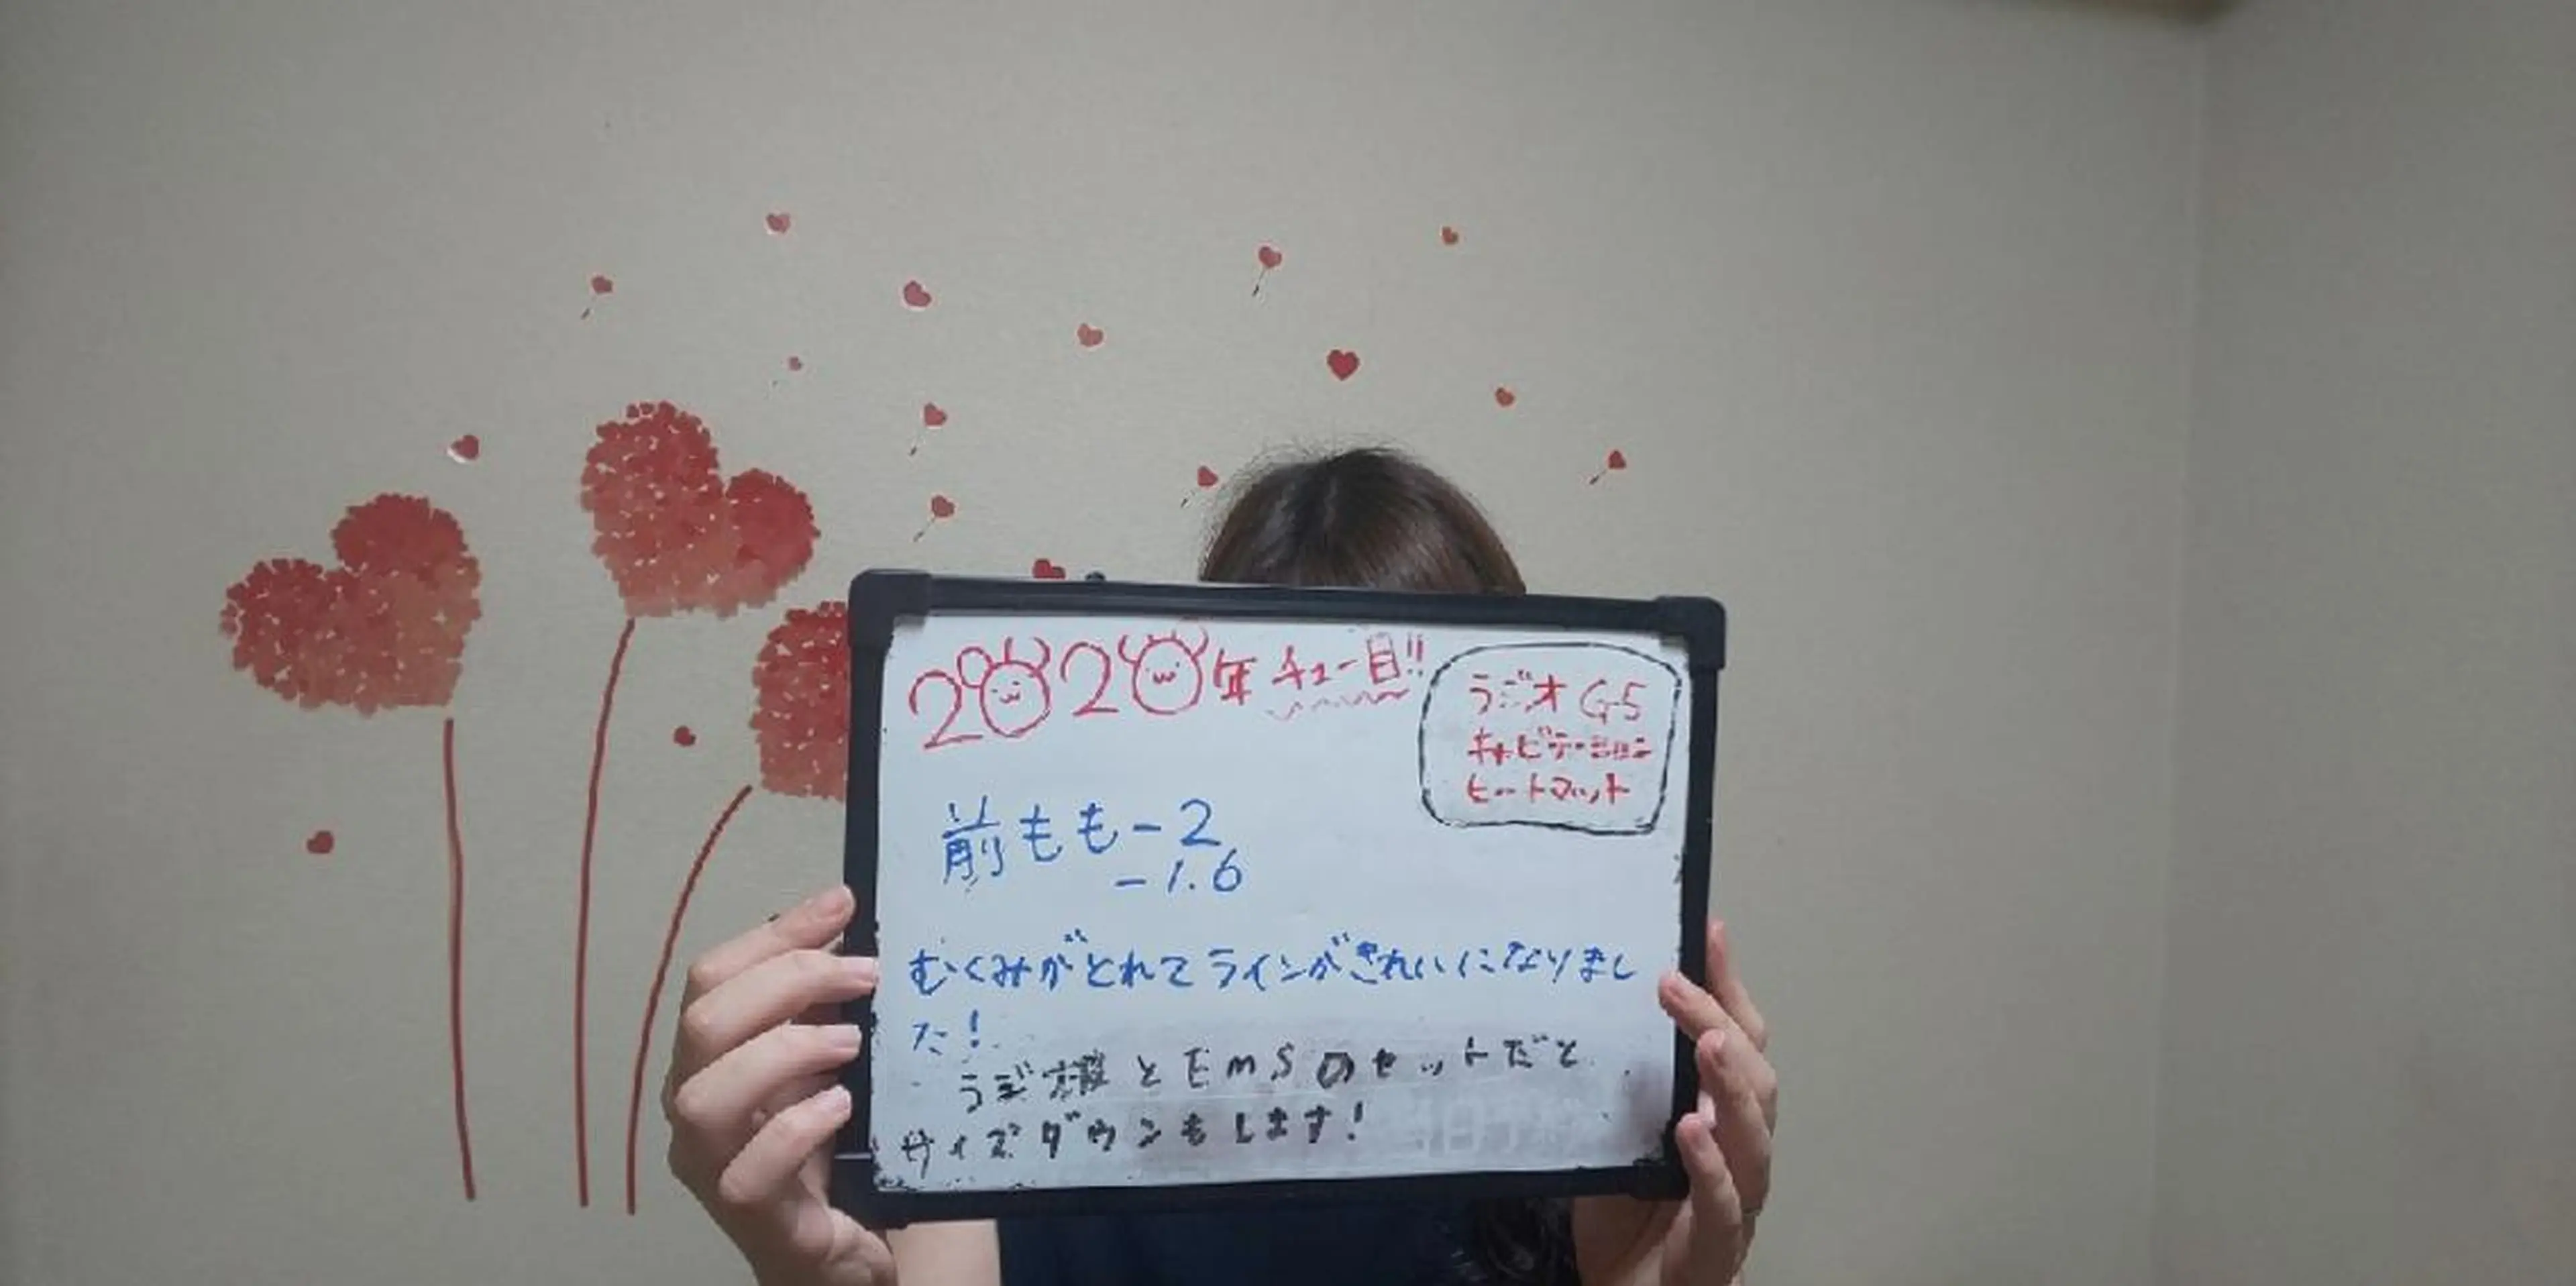 2020年チュー目!!
ラジオ G5
キャビテーション
ヒートマット
前もも-2
-1.6
むくみがとれてラインがきれいになりまし
た!
ラジオ波とEMSのセットだと
サイズダウンもします!